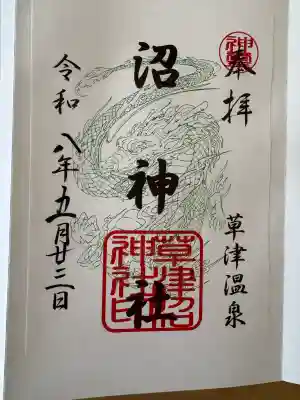 奉拝
草津温泉
沼神社
草津沼
神社印
令和八年五月廿三日